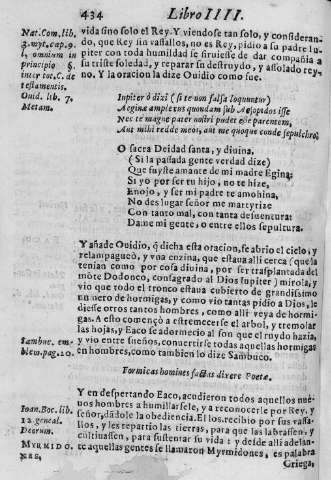 434 Libro IIII.
Nat. Com. lib.
3. myt. cap. 9.
l. omnium in
principio §.
inter tot. C. de
testamentis.
Ouid. lib. 7.
Metam.
vida sino solo el Rey. Y viendose tan solo, y consideran-
do, que Rey sin vassallos, no es Rey, pidio a su padre Iu-
piter con toda humildad se siruiesse de dar compañia a
su triste soledad, y reparar su destruydo, y assolado rey-
no. Y la oracion la dize Ouidio como fue.
Iupiter ò dixi (si te non falsa loquuntur)
Aeginæ amplexus quondam sub Aesopidos isse
Nec te magne pater nostri pudet esse parentem,
Aut mihi redde meos, aut me quoque conde sepulchro,
O sacra Deidad santa, y diuina.
(Si la passada gente verdad dize)
Que fuyste amante de mi madre Egina;
Si yo por ser tu hijo, no te hize,
Enojo, y ser mi padre te amohina,
No des lugar señor me martyrize
Con tanto mal, con tanta desuentura:
Dame mi gente, o entre ellos sepultura.
Y añade Ouidio, q̃ dicha esta oracion, se abrio el cielo, y
relampagueò, y vna enzina, que estaua alli cerca (que la
tenian como por cosa diuina, por ser trasplantada del
môte Dodoneo, consagrado al Dios Iupiter) mirola, y
vio que todo el tronco estaua cubierto de grandissimo
numero de hormigas, y como vio tantas pidio a Dios, le
diesse otros tantos hombres, como alli veya de hormi-
gas. A esto començò a estremecerse el arbol, y tremolar
las hojas, y Eaco se adormecio al son que el ruydo hazia,
y vio entre sueños, conuertirse todas aquellas hormigas
en hombres, como tambien lo dize Sambuco.
Sambuc. em-
blem. pag. 20.
Formicas homines factas dixere Poetæ.
Y en despertando Eaco, acudieron todos aquellos nue-
uos hombres a humillarsele, y a reconocerle por Rey, y
señor, dādole la obediencia. El los recibio por sus vassa-
llos, y les repartio las tierras, para que las labrassen, y
cultiuassen, para sustentar su vida: y desde alli adelan-
te aquellas gentes se llamaron Myrmidones, es palabra
Ioan. Boc. lib.
12. geneal.
Deorum.
MYRMIDO.
NES,
Griega,